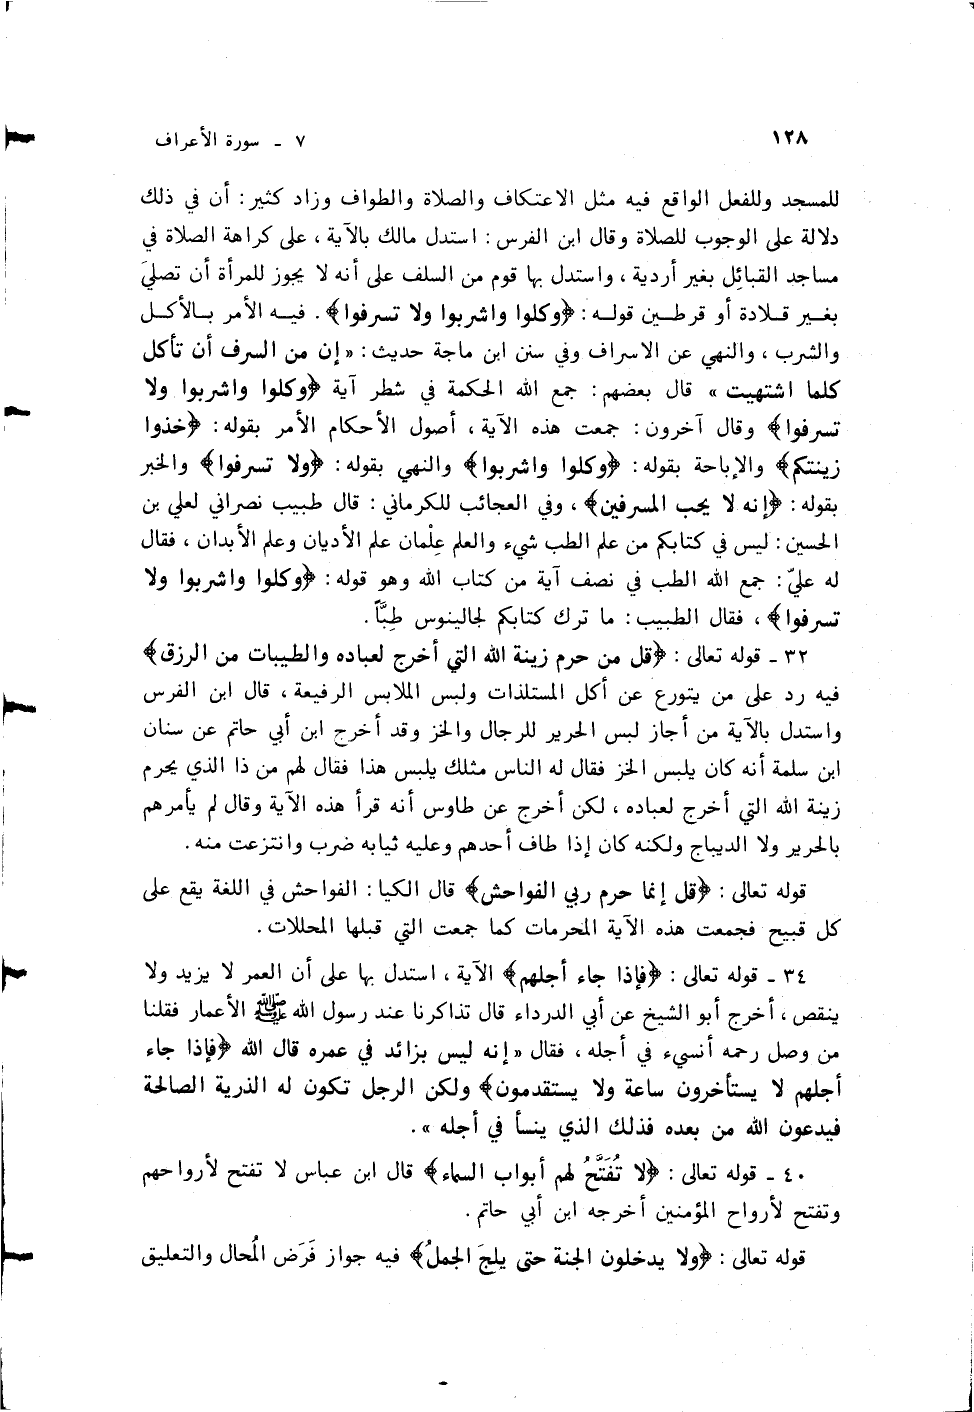 ١٢٨
٧ - سورة الأعراف
للمسجد وللفعل الواقع فيه مثل الاعتكاف والصلاة والطواف وزاد كثير : أن في ذلك
دلالة على الوجوب للصلاة وقال ابن الفرس : استدل مالك بالآية ، على كراهة الصلاة في
مساجد القبائل بغير أردية ، واستدل بها قوم من السلف على أنه لا يجوز للمرأة أن تصليَ
بغير قلادة أو قرطين قوله : ﴿وكلوا واشربوا ولا تسرفوا﴾ . فيه الأمر بالأكل
والشرب ، والنهي عن الاسراف وفي سنن ابن ماجة حديث : « إن من السرف أن تأكل
كلما اشتهيت » قال بعضهم : جمع الله الحكمة في شطر آية ﴿وكلوا واشربوا ولا
تسرفوا﴾ وقال آخرون : جمعت هذه الآية ، أصول الأحكام الأمر بقوله : ﴿خذوا
زينتكم﴾ والإباحة بقوله : ﴿وكلوا واشربوا﴾ والنهي بقوله : ﴿ولا تسرفوا﴾ والخبر
بقوله : ﴿إنه لا يحب المسرفين﴾ ، وفي العجائب للكرماني : قال طبيب نصراني لعلي بن
الحسين : ليس في كتابكم من علم الطب شيء والعلم عِلْمان علم الأديان وعلم الأبدان ، فقال
له عليّ : جمع الله الطب في نصف آية من كتاب الله وهو قوله : ﴿وكلوا واشربوا ولا
تسرفوا﴾ ، فقال الطبيب : ما ترك كتابكم لجالينوس طِبًّا .
٣٢ - قوله تعالى : ﴿قل من حرم زينة الله التي أخرج لعباده والطيبات من الرزق﴾
فيه رد على من يتورع عن أكل المستلذات ولبس الملابس الرفيعة ، قال ابن الفرس
واستدل بالآية من أجاز لبس الحرير للرجال والخز وقد أخرج ابن أبي حاتم عن سنان
ابن سلمة أنه كان يلبس الخز فقال له الناس مثلك يلبس هذا فقال لهم من ذا الذي يحرم
زينة الله التي أخرج لعباده ، لكن أخرج عن طاوس أنه قرأ هذه الآية وقال لم يأمرهم
بالحرير ولا الديباج ولكنه كان إذا طاف أحدهم وعليه ثيابه ضرب وانتزعت منه .
قوله تعالى : ﴿قل إنما حرم ربي الفواحش﴾ قال الكيا : الفواحش في اللغة يقع على
كل قبيح فجمعت هذه الآية المحرمات كما جمعت التي قبلها المحللات .
٣٤ - قوله تعالى : ﴿فإذا جاء أجلهم﴾ الآية ، استدل بها على أن العمر لا يزيد ولا
ينقص ، أخرج أبو الشيخ عن أبي الدرداء قال تذاكرنا عند رسول الله ﷺ الأعمار فقلنا
من وصل رحمه أنسيء في أجله ، فقال « إنه ليس بزائد في عمره قال الله ﴿فإذا جاء
أجلهم لا يستأخرون ساعة ولا يستقدمون﴾ ولكن الرجل تكون له الذرية الصالحة
فيدعون الله من بعده فذلك الذي ينسأ في أجله » .
٤٠ - قوله تعالى : ﴿لا تُفَتَّحُ لهم أبواب السماء﴾ قال ابن عباس لا تفتح لأرواحهم
وتفتح لأرواح المؤمنين أخرجه ابن أبي حاتم .
قوله تعالى : ﴿ولا يدخلون الجنة حتى يلجَ الجملُ﴾ فيه جواز فَرَض المُحال والتعليق